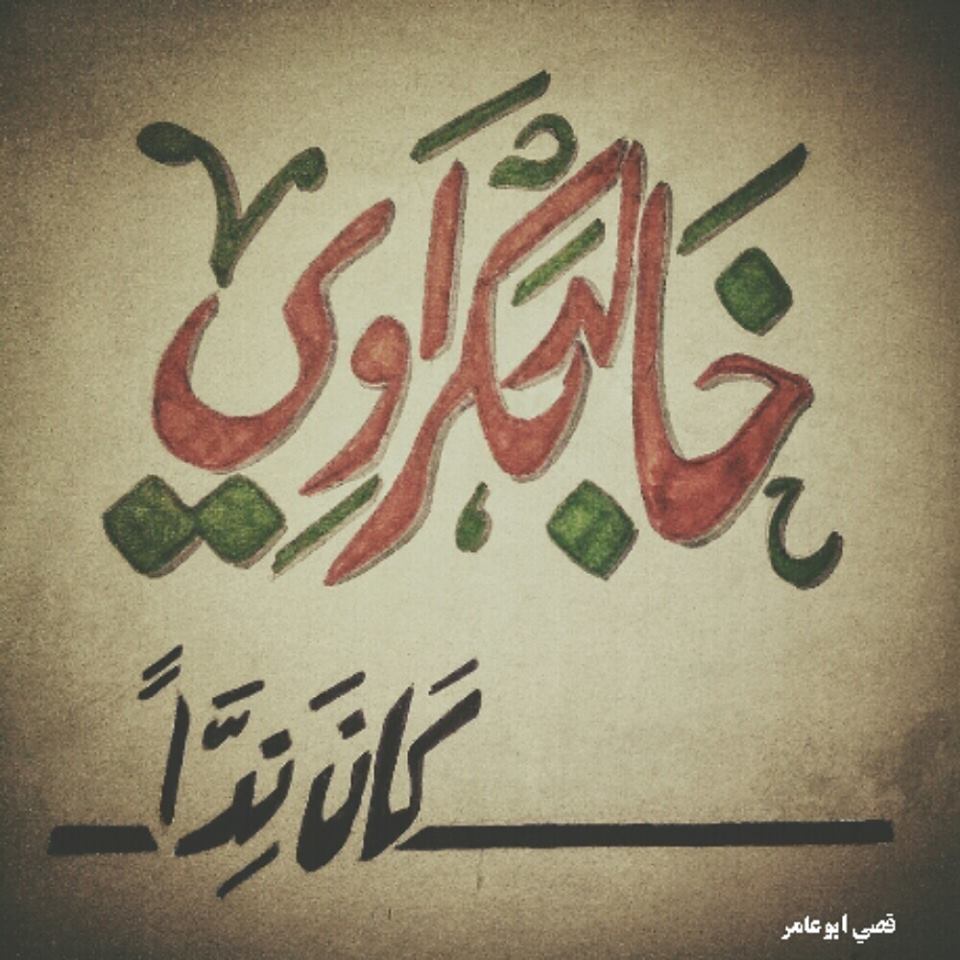 خَالد بَكْرَاوِي
كَانَ نِدَّاً
قصي ابو عامر